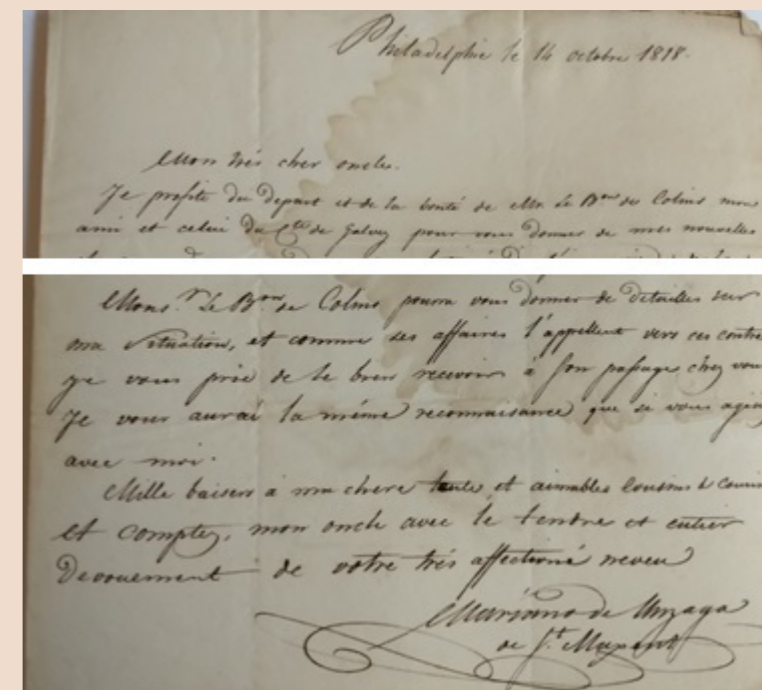 Philadelphie le 14 octobre 1818.
Mon trés cher oncle.
Je profite du Depart et de la bonté de Mr. Le Bon des Colins mon
ami et celui du Cte de Galvez pour vous Donner de mes nouvelles
Monsr. Le Bon de Colins pourra vous donner de Detailles sur
ma Situation, et comme ses affaires l'appellent vers ces contré
je vous prie de le bien recevoir à son passage chez vous
Je vous aurai la même reconnaisance que si vous agiez
avec moi.
Mille baisers a ma chere tante et aimables Cousins & Cousin
et comptez, mon oncle avec le tendre et entier
Devouement de votre trés affectioné neveu
Mariano de Unzaga
de St. Maxent